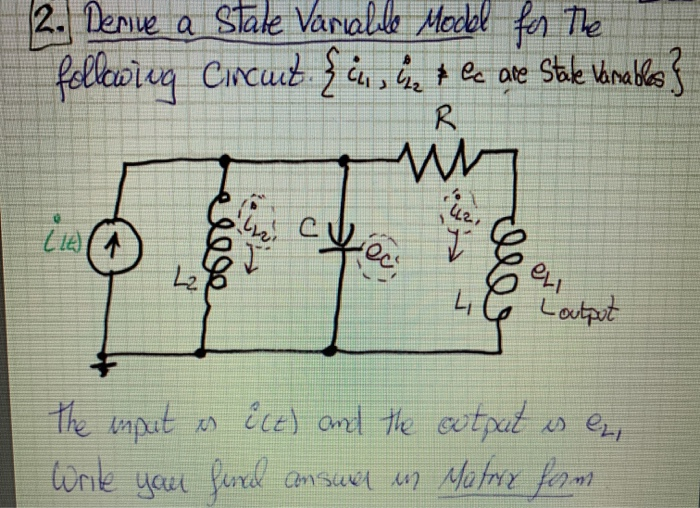 2. Derive a State Variable Model for The
following Circuit. { iL1, iL2 & ec are State Variables }
R
i(t)
L2
iL2
C
ec
iL2
L1
eL1
output
The input is i(t) and the output is eL1
Write your final answer in Matrix form